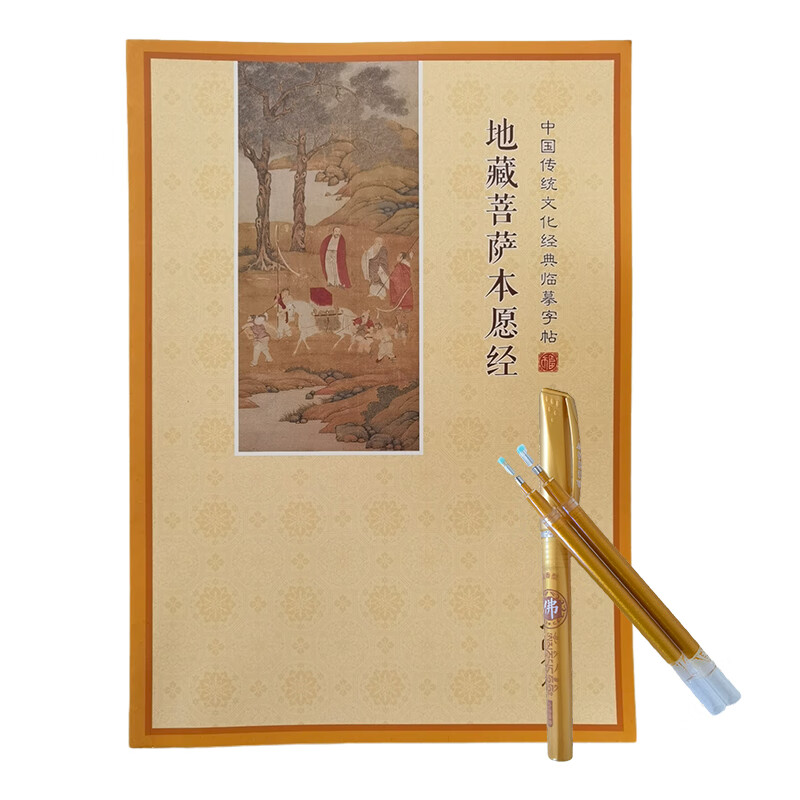 中国传统文化经典临摹字帖
地藏菩萨本愿经
佛